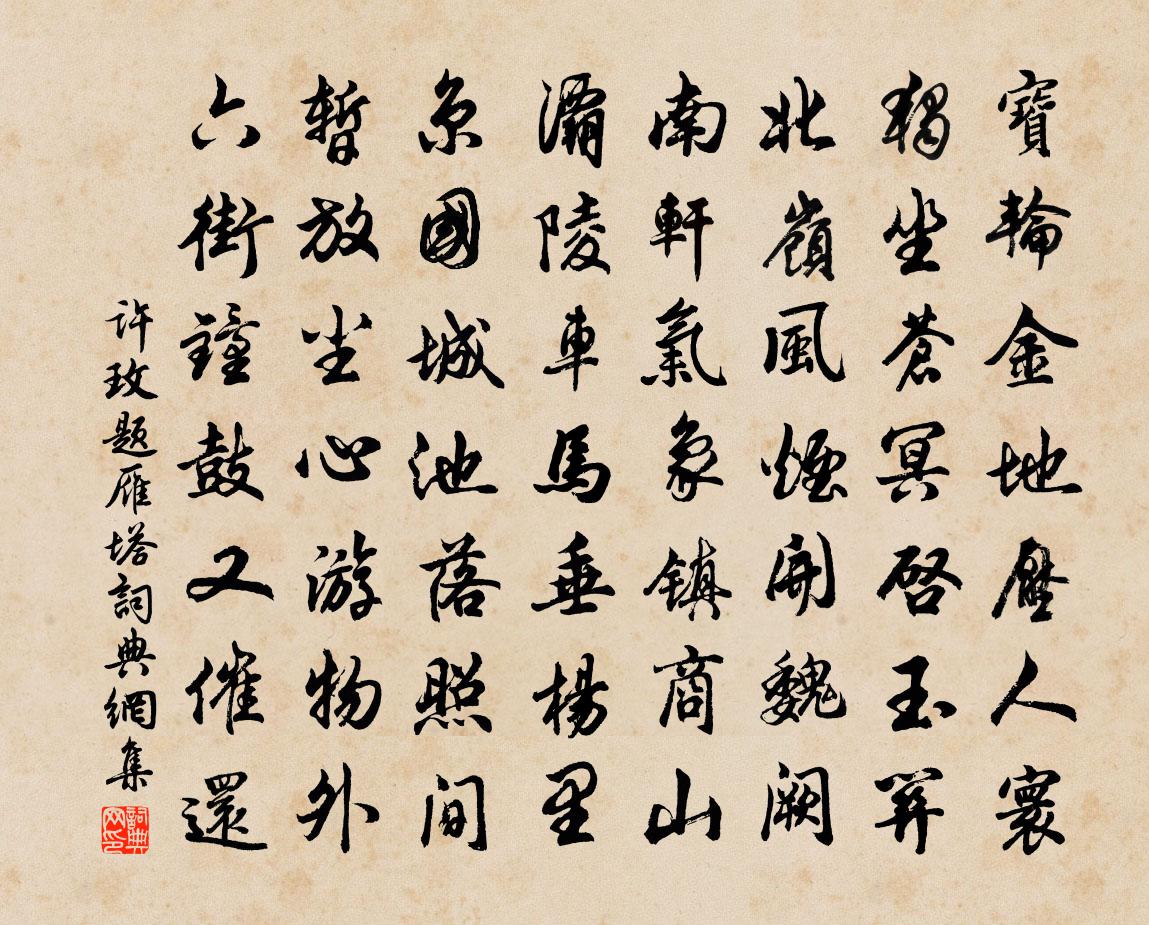 寶輪金地壓人寰
獨坐蒼冥啓玉關
北嶺風煙開魏闕
南軒氣象鎮商山
灞陵車馬垂楊里
京國城池落照間
暫放尘心游物外
六街鐘鼓又催還
许玫题雁塔詞典網集
詞典网印